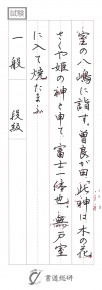 試験
室の八嶋に詣す。曽良が曰、此神は木の花
さくや姫の神と申て、富士一体也。無戸室
に入て焼たまふ
一般 段級
書道総研